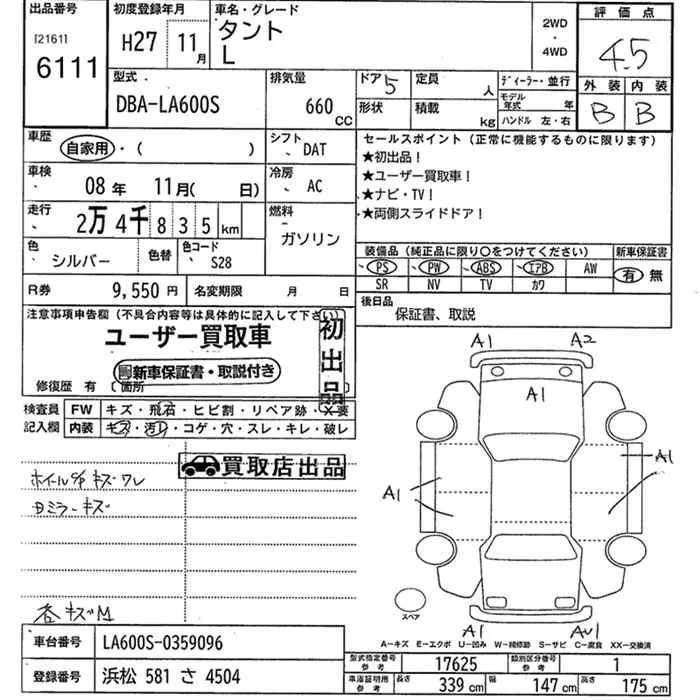 出品番号
[2161]
6111
初度登録年月
H27 11月
車名・グレード
タント
L
2WD
・
4WD
評価点
4.5
外装 内装
B B
型式
DBA-LA600S
排気量
660
CC
ドア 5
形状
定員
人
積載
kg
ディーラー・並行
モデル年式 年
ハンドル 左・右
車歴
自家用・( )
シフト
DAT
車検
08年 11月( 日)
冷房
AC
走行
2万4千835km
燃料
ガソリン
色
シルバー
色替
色コード
S28
R券
9,550円
名変期限 月 日
セールスポイント(正常に機能するものに限ります)
★初出品!
★ユーザー買取車!
★ナビ・TV!
★両側スライドドア!
装備品(純正品に限り○をつけてください)
PS PW ABS エアB AW
SR NV TV カワ
新車保証書
有 無
後日品
保証書、取説
注意事項申告欄(不具合内容等は具体的に記入して下さい)
ユーザー買取車
新車保証書・取説付き
初出品
修復歴 有 [箇所
検査員
記入欄
FW キズ・飛石・ヒビ割・リペア跡・X要
内装 キズ・汚レ・コゲ・穴・スレ・キレ・破レ
買取店出品
ホイールC/P キズ ワレ
Dミラーキズ
各キズM
A1 A2
A1
A1
A1
A1
スペア
A1 AU1
A－キズ E－エクボ U－凹み W－補修跡 S－サビ C－腐食 XX－交換済
車台番号
LA600S-0359096
登録番号
浜松 581 さ 4504
型式指定番号
参考
17625
類別区分番号
参考
1
車庫証明用
参考
長さ 339 cm
幅 147 cm
高さ 175 cm